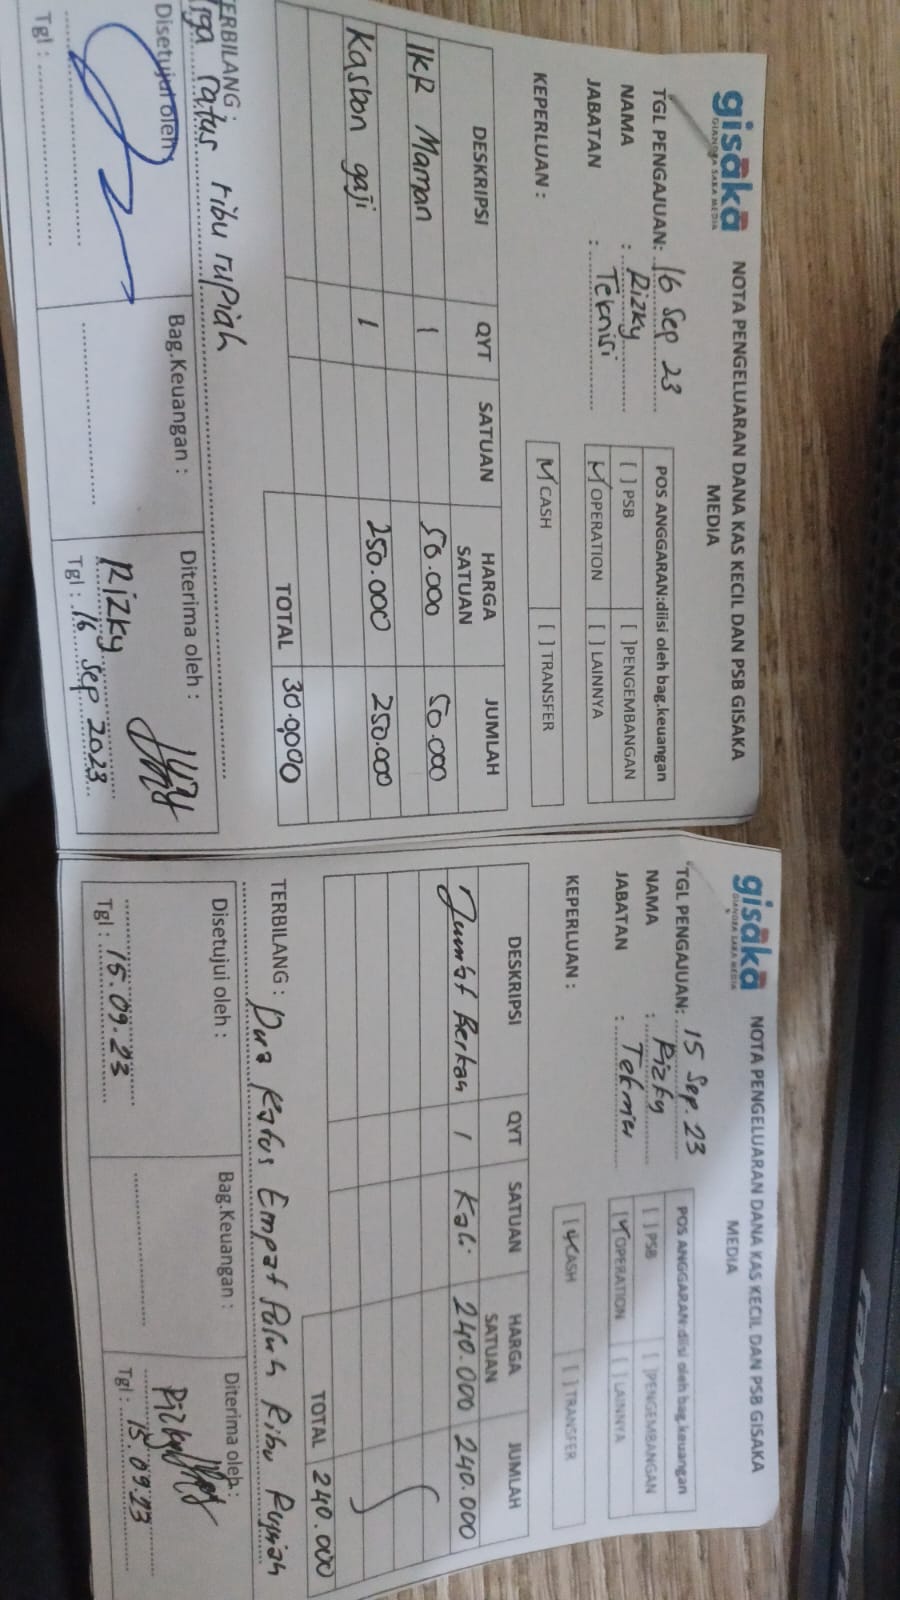 gisaka
GIANDRA SAKA MEDIA
NOTA PENGELUARAN DANA KAS KECIL DAN PSB GISAKA
MEDIA
TGL PENGAJUAN: 16 Sep 23
NAMA : Rizky
JABATAN : Teknisi
POS ANGGARAN:diisi oleh bag.keuangan
[ ] PSB [ ]PENGEMBANGAN
[✓] OPERATION [ ] LAINNYA
KEPERLUAN :
[✓] CASH [ ] TRANSFER
DESKRIPSI QYT SATUAN HARGA SATUAN JUMLAH
IKR Maman 1 50.000 50.000
Kasbon gaji 1 250.000 250.000
TOTAL 300.000
TERBILANG :
Tiga ratus ribu rupiah
Disetujui oleh : Bag.Keuangan : Diterima oleh :
Rizky
Tgl : Tgl : 16 Sep 2023
gisaka
GIANDRA SAKA MEDIA
NOTA PENGELUARAN DANA KAS KECIL DAN PSB GISAKA
MEDIA
TGL PENGAJUAN: 15 Sep. 23
NAMA : Rizky
JABATAN : Teknisi
POS ANGGARAN:diisi oleh bag.keuangan
[ ] PSB [ ]PENGEMBANGAN
[✓] OPERATION [ ] LAINNYA
KEPERLUAN :
[✓] CASH [ ] TRANSFER
DESKRIPSI QYT SATUAN HARGA SATUAN JUMLAH
Jumat Berkah 1 Kali 240.000 240.000
TOTAL 240.000
TERBILANG : Dua Ratus Empat Puluh Ribu Rupiah
Disetujui oleh : Bag.Keuangan : Diterima oleh :
Rizky
Tgl : 15.09.23 Tgl : 15.09.23